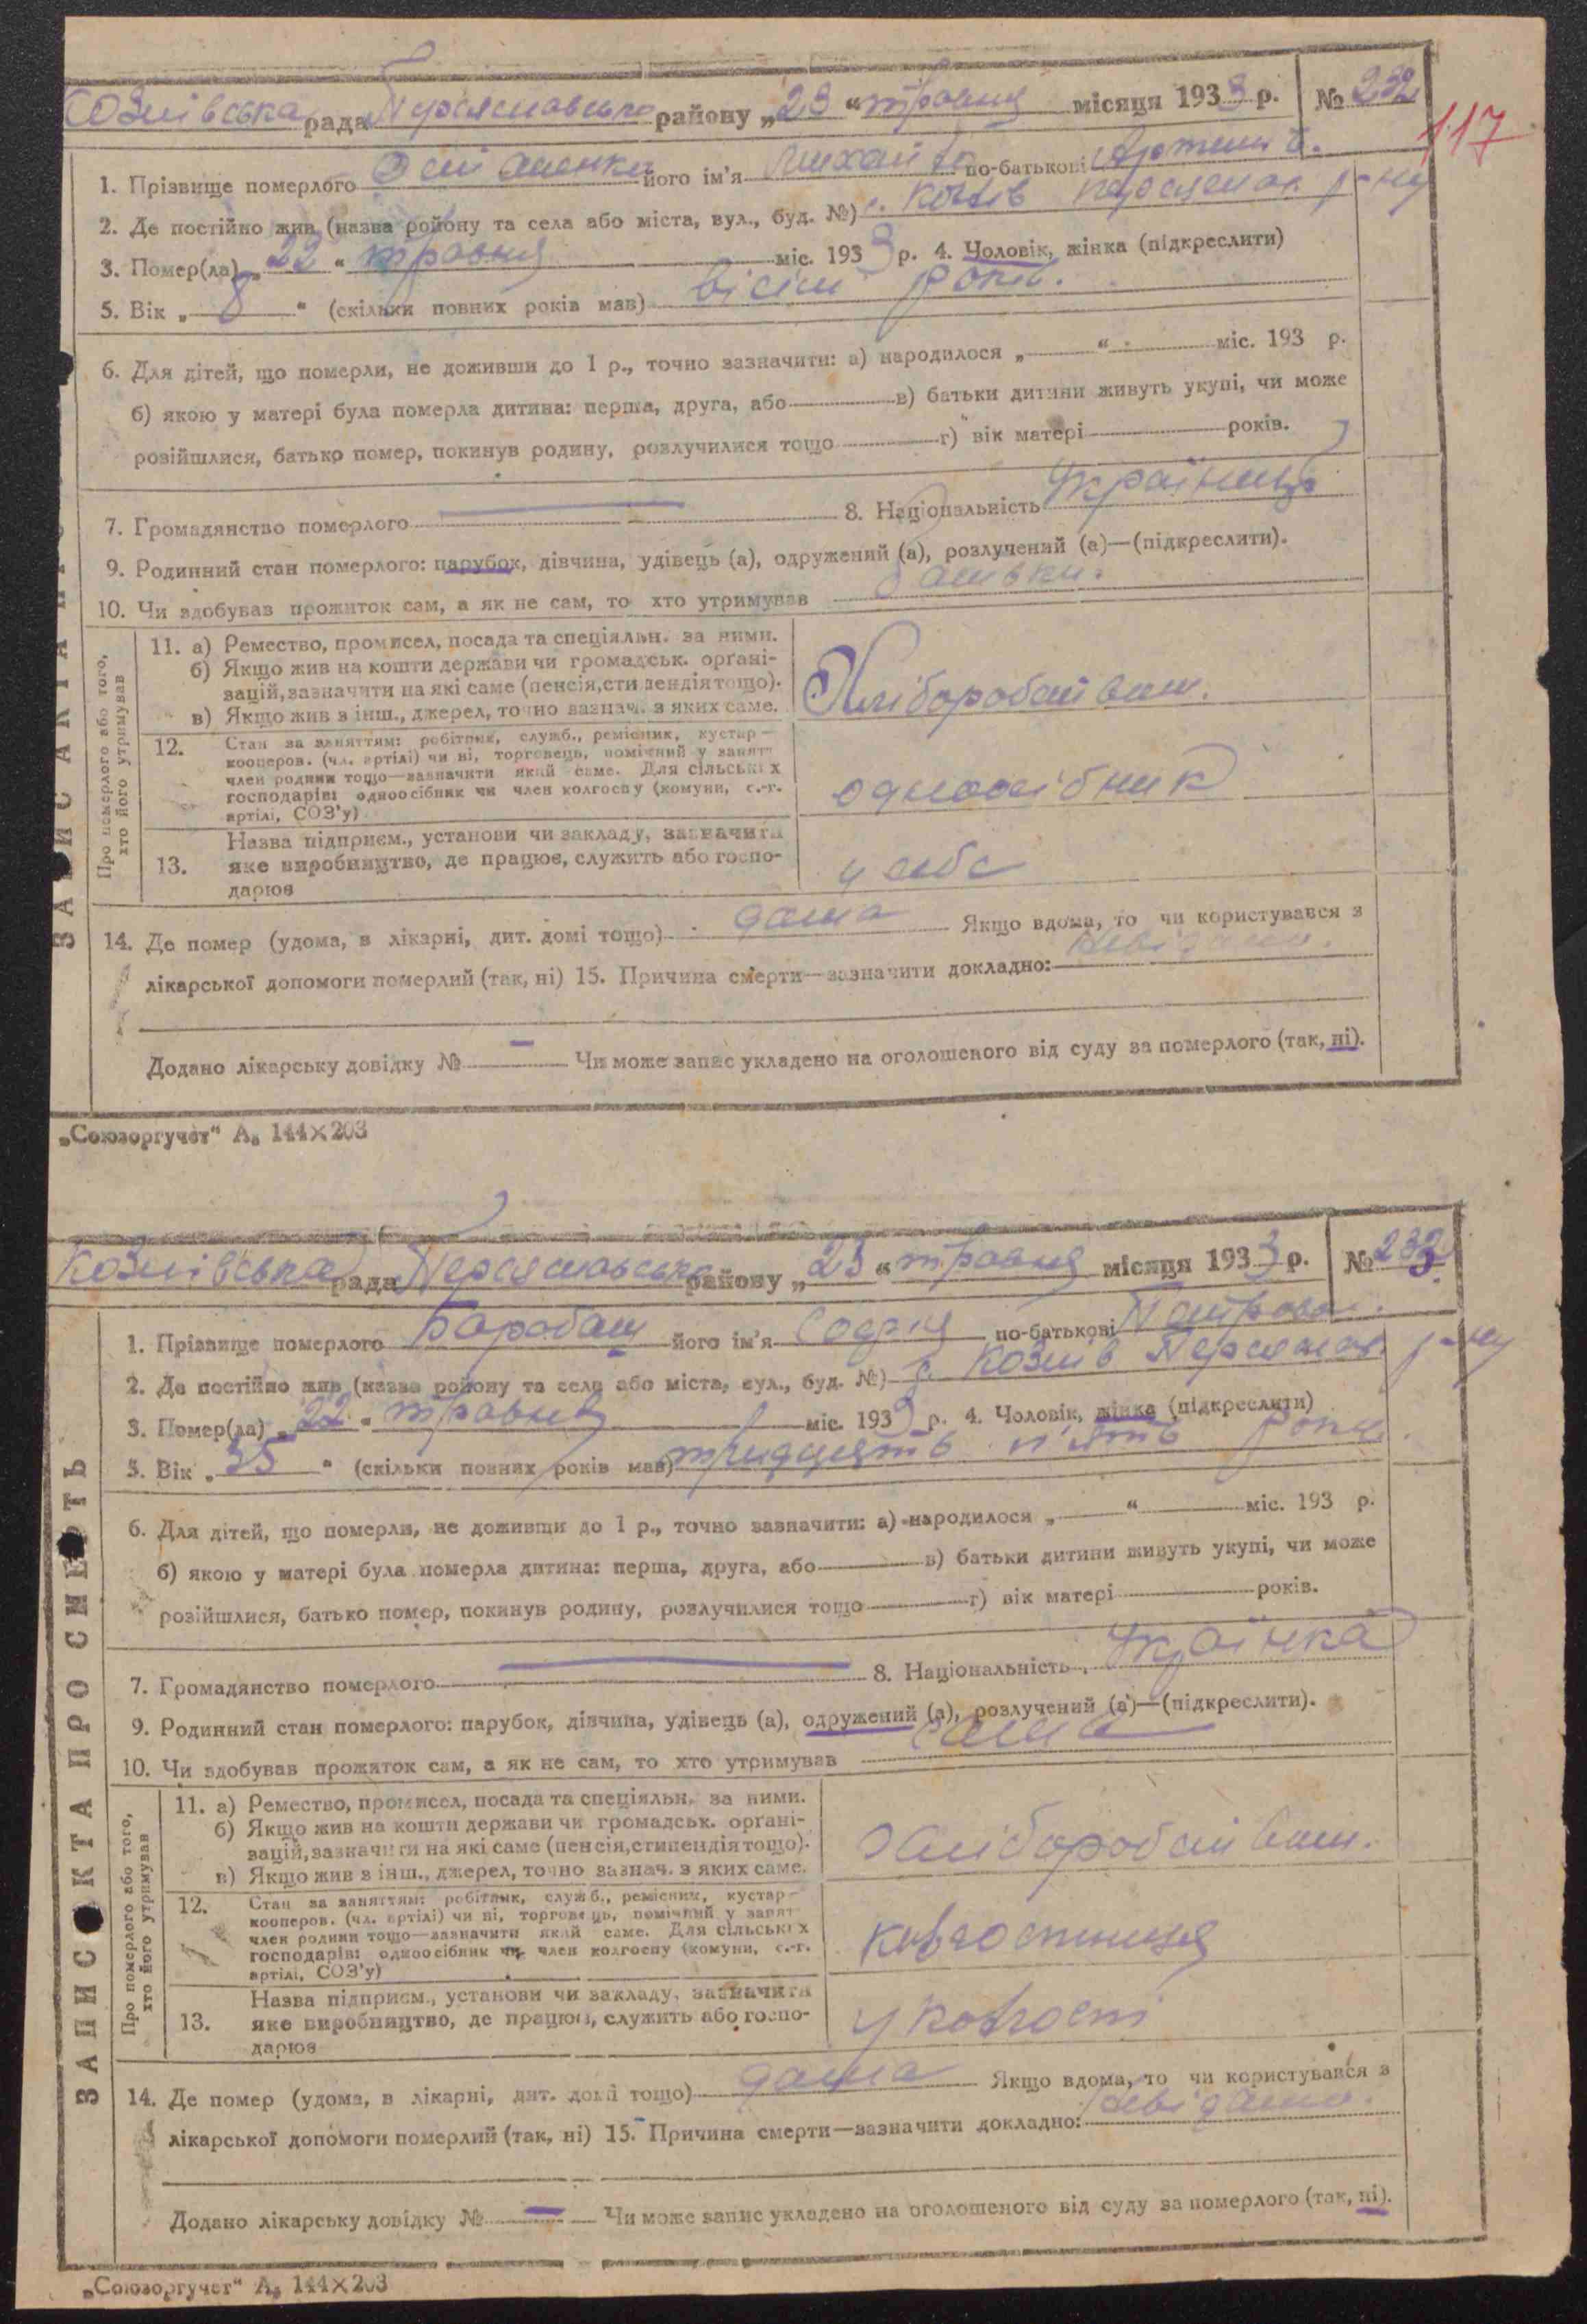 Козлівська рада Переяславська району „23“ травня місяця 1933 р. № 232
117
1. Прізвище померлого його ім'я Михайло по-батькові Артем.
2. Де постійно жив (назва району та села або міста, вул., буд. №) с. Козлів Переяслав. р-ну
3. Помер(ла) „22“ травня міс. 1933 р. 4. Чоловік, жінка (підкреслити)
5. Вік „8“ (скільки повних років мав) вісім років.
6. Для дітей, що померли, не доживши до 1 р., точно зазначити: а) народилося „ “ міс. 193 р.
б) якою у матері була померла дитина: перша, друга, або в) батьки дитини живуть укупі, чи може
розійшлися, батько помер, покинув родину, розлучилися тощо г) вік матері років.
7. Громадянство померлого 8. Національність Українець
9. Родинний стан померлого: парубок, дівчина, удівець (а), одружений (а), розлучений (а)—(підкреслити).
10. Чи здобував прожиток сам, а як не сам, то хто утримував батьки.
Про померлого або того, хто його утримував
11. а) Ремество, промисел, посада та спеціяльн. за ними.
б) Якщо жив на кошти держави чи громадськ. орґані-
зацій, зазначити на які саме (пенсія, стипендія тощо).
в) Якщо жив з інш., джерел, точно зазнач. з яких саме.
Хліборобством.
12. Стан за заняттям: робітник, служб., ремісник, кустар—
кооперов. (чл. артілі) чи ні, торговець, помічний у занятт
член родини тощо—зазначити який саме. Для сільських
господарів: одноосібник чи член колгоспу (комуни, с.-г.
артілі, СОЗ'у)
одноосібник
13. Назва підприєм., установи чи закладу, зазначити
яке виробництво, де працює, служить або госпо-
дарює
у себе
14. Де помер (удома, в лікарні, дит. домі тощо) дома Якщо вдома, то чи користувався з
лікарської допомоги померлий (так, ні) 15. Причина смерти—зазначити докладно: невідомо.
Додано лікарську довідку № — Чи може запис укладено на оголошеного від суду за померлого (так, ні).
„Союзоргучет“ А₆ 144×203
Козлівська рада Переяславська району „23“ травня місяця 1933 р. № 233
ЗАПИС АКТА ПРО СМЕРТЬ
1. Прізвище померлого Барабаш його ім'я по-батькові Петрова.
2. Де постійно жив (назва району та села або міста, вул., буд. №) с. Козлів Переяслав. р-ну
3. Помер(ла) „22“ травня міс. 1933 р. 4. Чоловік, жінка (підкреслити)
5. Вік „35“ (скільки повних років мав) тридцять п'ять років.
6. Для дітей, що померли, не доживши до 1 р., точно зазначити: а) народилося „ “ міс. 193 р.
б) якою у матері була померла дитина: перша, друга, або в) батьки дитини живуть укупі, чи може
розійшлися, батько помер, покинув родину, розлучилися тощо г) вік матері років.
7. Громадянство померлого 8. Національність Українка
9. Родинний стан померлого: парубок, дівчина, удівець (а), одружений (а), розлучений (а)—(підкреслити).
10. Чи здобував прожиток сам, а як не сам, то хто утримував сама
Про померлого або того, хто його утримував
11. а) Ремество, промисел, посада та спеціяльн. за ними.
б) Якщо жив на кошти держави чи громадськ. орґані-
зацій, зазначити на які саме (пенсія, стипендія тощо).
в) Якщо жив з інш., джерел, точно зазнач. з яких саме.
Хліборобством.
12. Стан за заняттям: робітник, служб., ремісник, кустар—
кооперов. (чл. артілі) чи ні, торговець, помічний у занятт
член родини тощо—зазначити який саме. Для сільських
господарів: одноосібник чи член колгоспу (комуни, с.-г.
артілі, СОЗ'у)
ковгоспниця
13. Назва підприєм., установи чи закладу, зазначити
яке виробництво, де працює, служить або госпо-
дарює
у ковгоспі
14. Де помер (удома, в лікарні, дит. домі тощо) дома Якщо вдома, то чи користувався з
лікарської допомоги померлий (так, ні) 15. Причина смерти—зазначити докладно: невідомо.
Додано лікарську довідку № — Чи може запис укладено на оголошеного від суду за померлого (так, ні).
„Союзоргучет“ А₆ 144×203